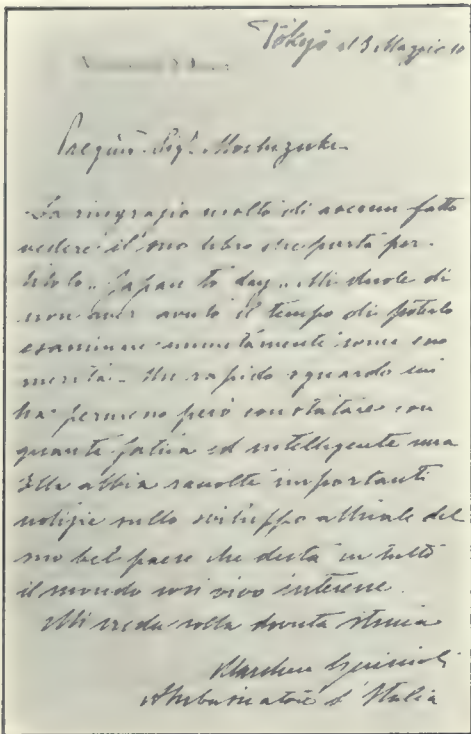 Tokyo il 3 Maggio 10
Pregmo Sigr Mochizuki
La ringrazio molto di avermi fatto
vedere il suo libro che porta per
titolo „Japan to day„. Mi duole di
non aver avuto il tempo di poterlo
esaminare minutamente come esso
merita. Un rapido sguardo mi
ha permesso però constatare con
quanta fatica ed intelligente cura
Ella abbia raccolte importanti
notizie sullo sviluppo attuale del
suo bel paese che desta in tutto
il mondo così vivo interesse.
Mi creda colla dovuta stima
Ambasciatore d'Italia